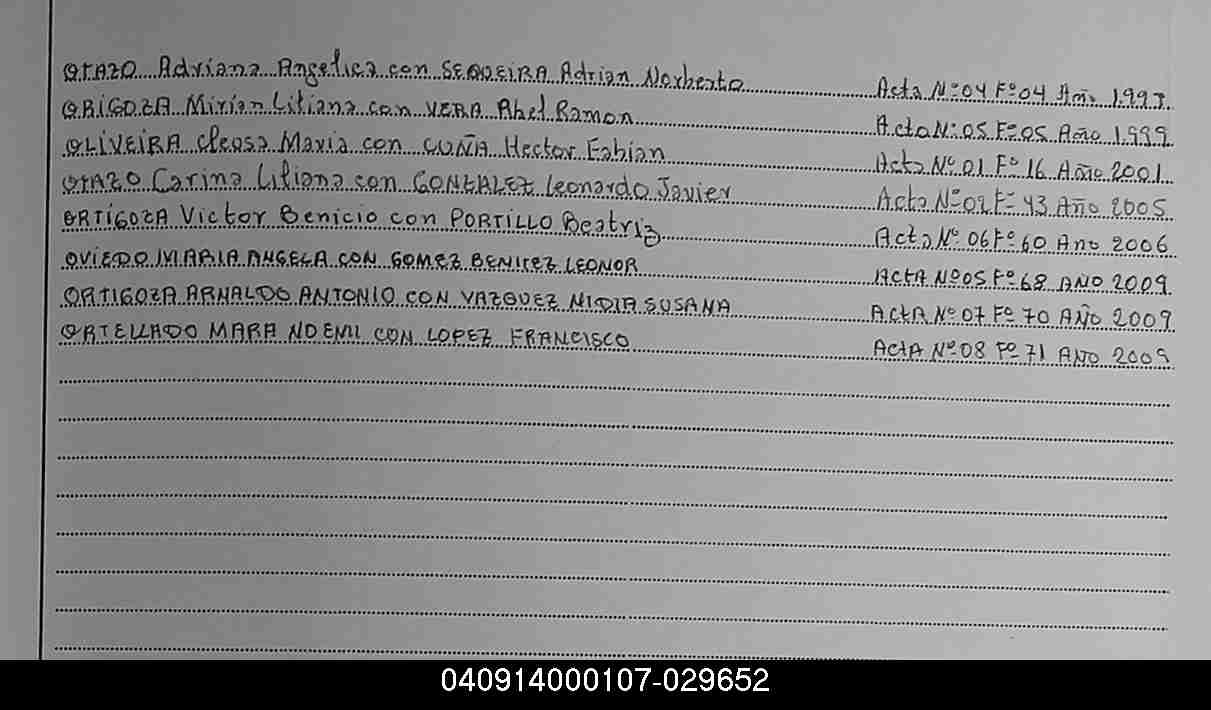 OTAZO Adriana Angelica con SEQUEIRA Adrian Norberto Acta Nº 04 Fº 04 Año
ORIGOZA Mirian Liliana con VERA Abel Ramon Acta Nº 05 Fº 05 Año 1.999
OLIVEIRA Cleosa Maria con CUÑA Hector Fabian Acta Nº 01 Fº 16 Año 2001
OTAZO Carina Liliana con GONZALEZ Leonardo Javier Acta Nº 02 Fº 43 Año 2005
ORTIGOZA Victor Benicio con PORTILLO Beatriz Acta Nº 06 Fº 60 Año 2006
OVIEDO MARIA ANGELA CON GOMEZ BENITEZ LEONOR ACTA Nº 05 Fº 68 AÑO 2009
ORTIGOZA ARNALDO ANTONIO CON VAZQUEZ NIDIA SUSANA ACTA Nº 07 Fº 70 AÑO 2009
ORTELLADO MARA NOEMI CON LOPEZ FRANCISCO ACTA Nº 08 Fº 71 AÑO 2009
040914000107-029652